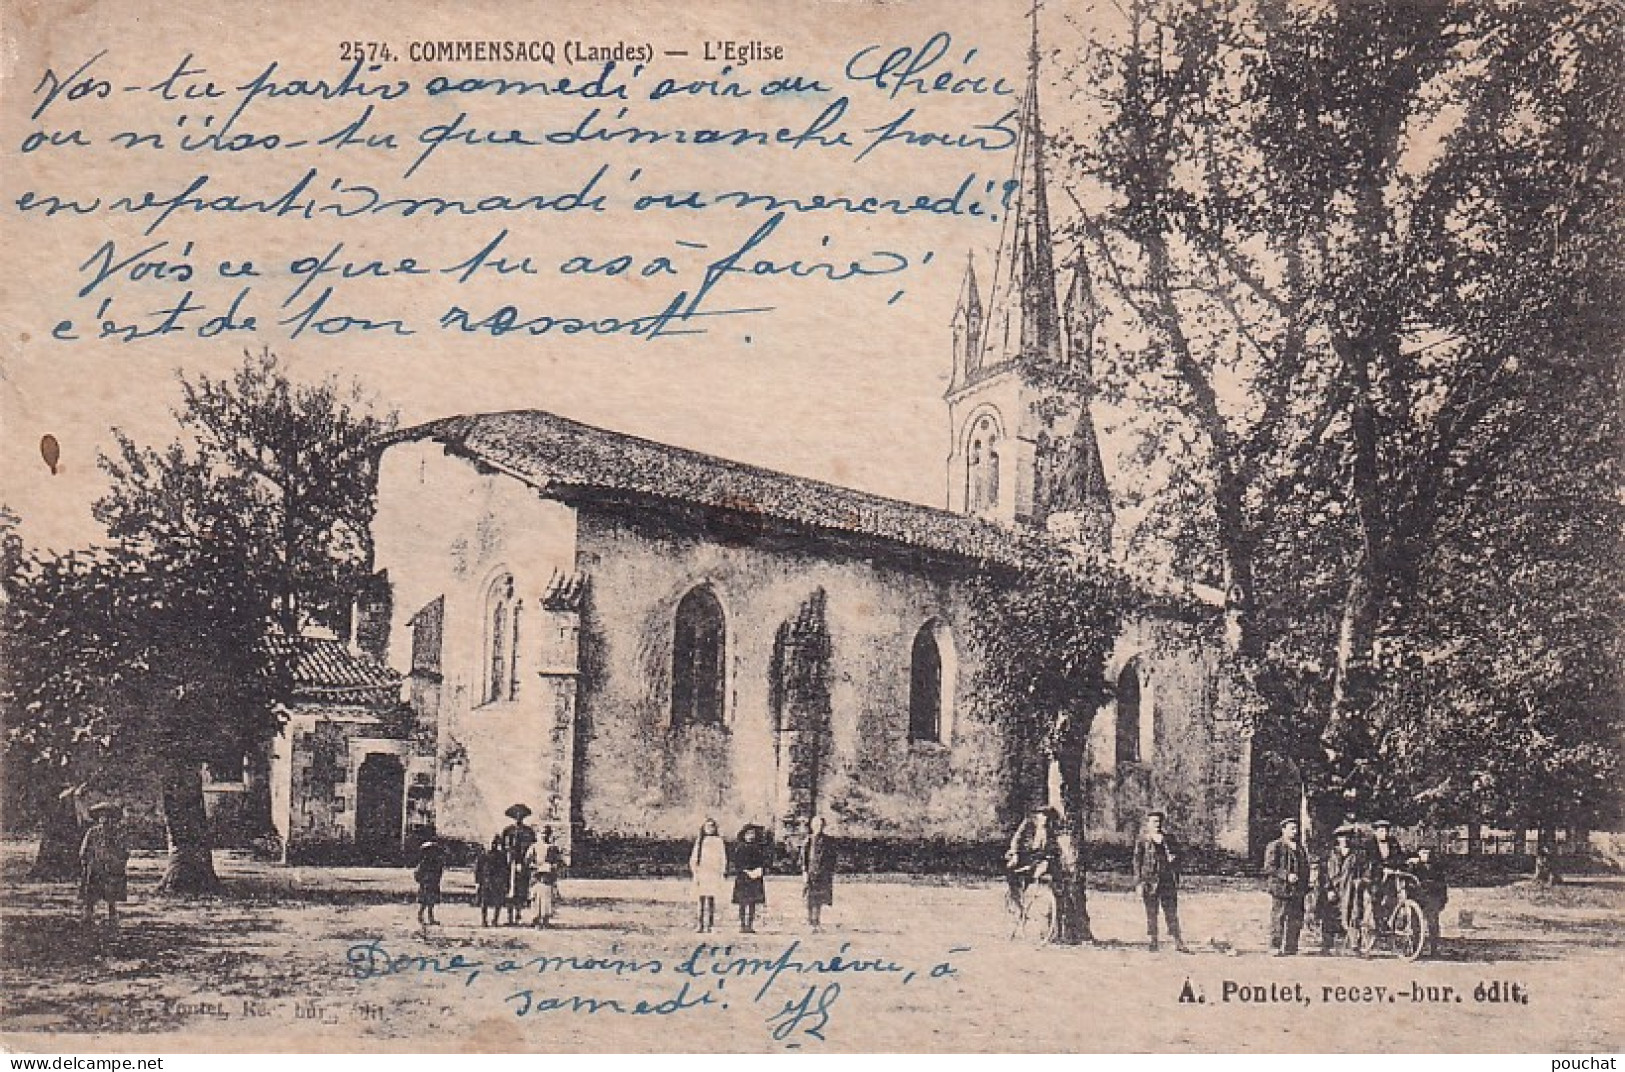 2574. COMMENSACQ (Landes) — L'Eglise
Vas-tu partir samedi soir au Chéou
ou n'iras-tu que dimanche pour
en repartir mardi ou mercredi ?
Vois ce que tu as à faire ;
c'est de ton ressort.
Donc, à moins d'imprévu, à
samedi.
A. Pontet, recev.-bur. édit.
Pontet, Re. bur. édit.
pouchat